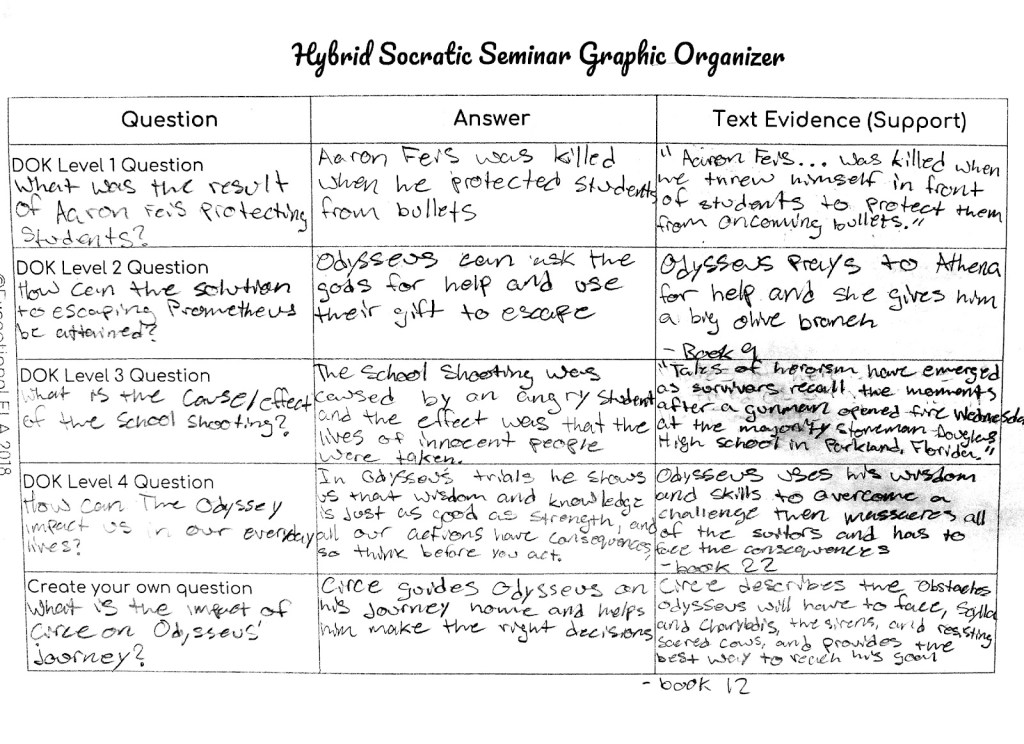 Hybrid Socratic Seminar Graphic Organizer
Question
Answer
Text Evidence (Support)
DOK Level 1 Question
What was the result
of Aaron Feis protecting
students?
Aaron Feis was killed
when he protected students
from bullets
"Aaron Feis... was killed when
he threw himself in front
of students to protect them
from oncoming bullets."
DOK Level 2 Question
How can the solution
to escaping Prometheus
be attained?
Odysseus can ask the
gods for help and use
their gift to escape
Odysseus Prays to Athena
for help and she gives him
a big olive branch
- Book 9
DOK Level 3 Question
What is the cause/effect
of the school shooting?
The School Shooting was
caused by an angry student
and the effect was that the
lives of innocent people
were taken.
"Tales of heroism have emerged
as survivors recall the moments
after a gunman opened fire Wednesday
at the majority stoneman Douglas
High school in Parkland, Florida."
DOK Level 4 Question
How can The Odyssey
impact us in our everyday
lives?
In Odysseus trials he shows
us that wisdom and knowledge
is just as good as strength, and
all our actions have consequences,
so think before you act.
Odysseus uses his wisdom
and skills to overcome a
challenge then massacres all
of the suitors and has to
face the consequences
- book 22
Create your own question
What is the impact of
Circe on Odysseus'
journey?
Circe guides Odysseus on
his journey home and helps
him make the right decisions
Circe describes the obstacles
Odysseus will have to face, Scylla
and Charybdis, the sirens, and resisting
sacred cows, and provides the
best way to reach his goal
- book 12
ELA 2018